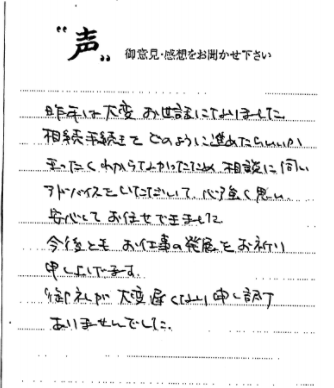 "声" 御意見・感想をお聞かせ下さい
昨年は大変お世話になりました
相続手続きをどのように進めたらいいか
まったくわからなかったため、相談に伺い
アドバイスをいただいて、心強く思い、
安心してお任せできました
今後とも お仕事の発展をお祈り
申し上げます。
御礼が大変遅くなり申し訳
ありませんでした。